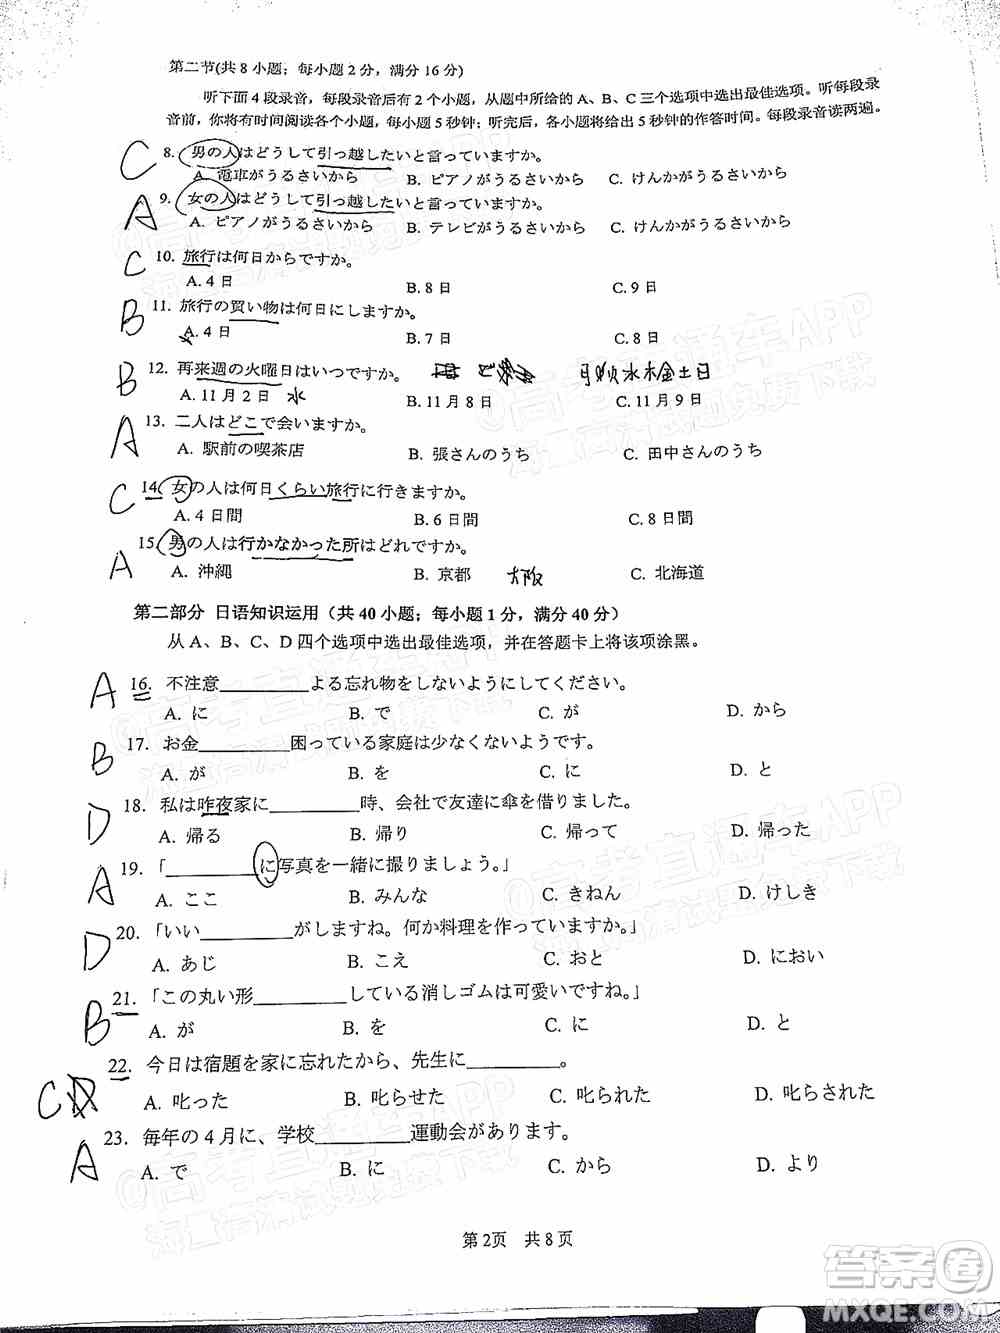 第二节(共 8 小题；每小题 2 分，满分 16 分)
听下面 4 段录音，每段录音后有 2 个小题，从题中所给的 A、B、C 三个选项中选出最佳选项。听每段录
音前，你将有时间阅读各个小题，每小题 5 秒钟；听完后，各小题将给出 5 秒钟的作答时间。每段录音读两遍。
C 8. 男の人はどうして引っ越したいと言っていますか。
A. 電車がうるさいから B. ピアノがうるさいから C. けんかがうるさいから
A 9. 女の人はどうして引っ越したいと言っていますか。
A. ピアノがうるさいから B. テレビがうるさいから C. けんかがうるさいから
C 10. 旅行は何日からですか。
A. 4 日 B. 8 日 C. 9日
B 11. 旅行の買い物は何日にしますか。
A. 4日 B. 7 日 C. 8 日
B 12. 再来週の火曜日はいつですか。 水木金土日
A. 11 月 2 日 水 B. 11 月 8 日 C. 11 月 9 日
A 13. 二人はどこで会いますか。
A. 駅前の喫茶店 B. 張さんのうち C. 田中さんのうち
C 14. 女の人は何日くらい旅行に行きますか。
A. 4 日間 B. 6 日間 C. 8 日間
A 15. 男の人は行かなかった所はどれですか。
A. 沖縄 B. 京都 大阪 C. 北海道
第二部分 日语知识运用（共 40 小题；每小题 1 分，满分 40 分）
从 A、B、C、D 四个选项中选出最佳选项，并在答题卡上将该项涂黑。
A 16. 不注意__________よる忘れ物をしないようにしてください。
A. に B. で C. が D. から
B 17. お金__________困っている家庭は少なくないようです。
A. が B. で C. に D. と
D 18. 私は昨夜家に__________時、会社で友達に傘を借りました。
A. 帰る B. 帰り C. 帰って D. 帰った
A 19. 「__________に写真を一緒に撮りましょう。」
A. ここ B. みんな C. きねん D. けしき
D 20. 「いい__________がしますね。何か料理を作っていますか。」
A. あじ B. こえ C. おと D. におい
B 21. 「この丸い形__________している消しゴムは可愛いですね。」
A. が B. を C. に D. と
C 22. 今日は宿題を家に忘れたから、先生に__________。
A. 叱った B. 叱らせた C. 叱られた D. 叱らされた
A 23. 毎年の 4 月に、学校__________運動会があります。
A. で B. に C. から D. より
第 2页 共 8 页
@高考直通车APP
答案圈
MXQE.COM